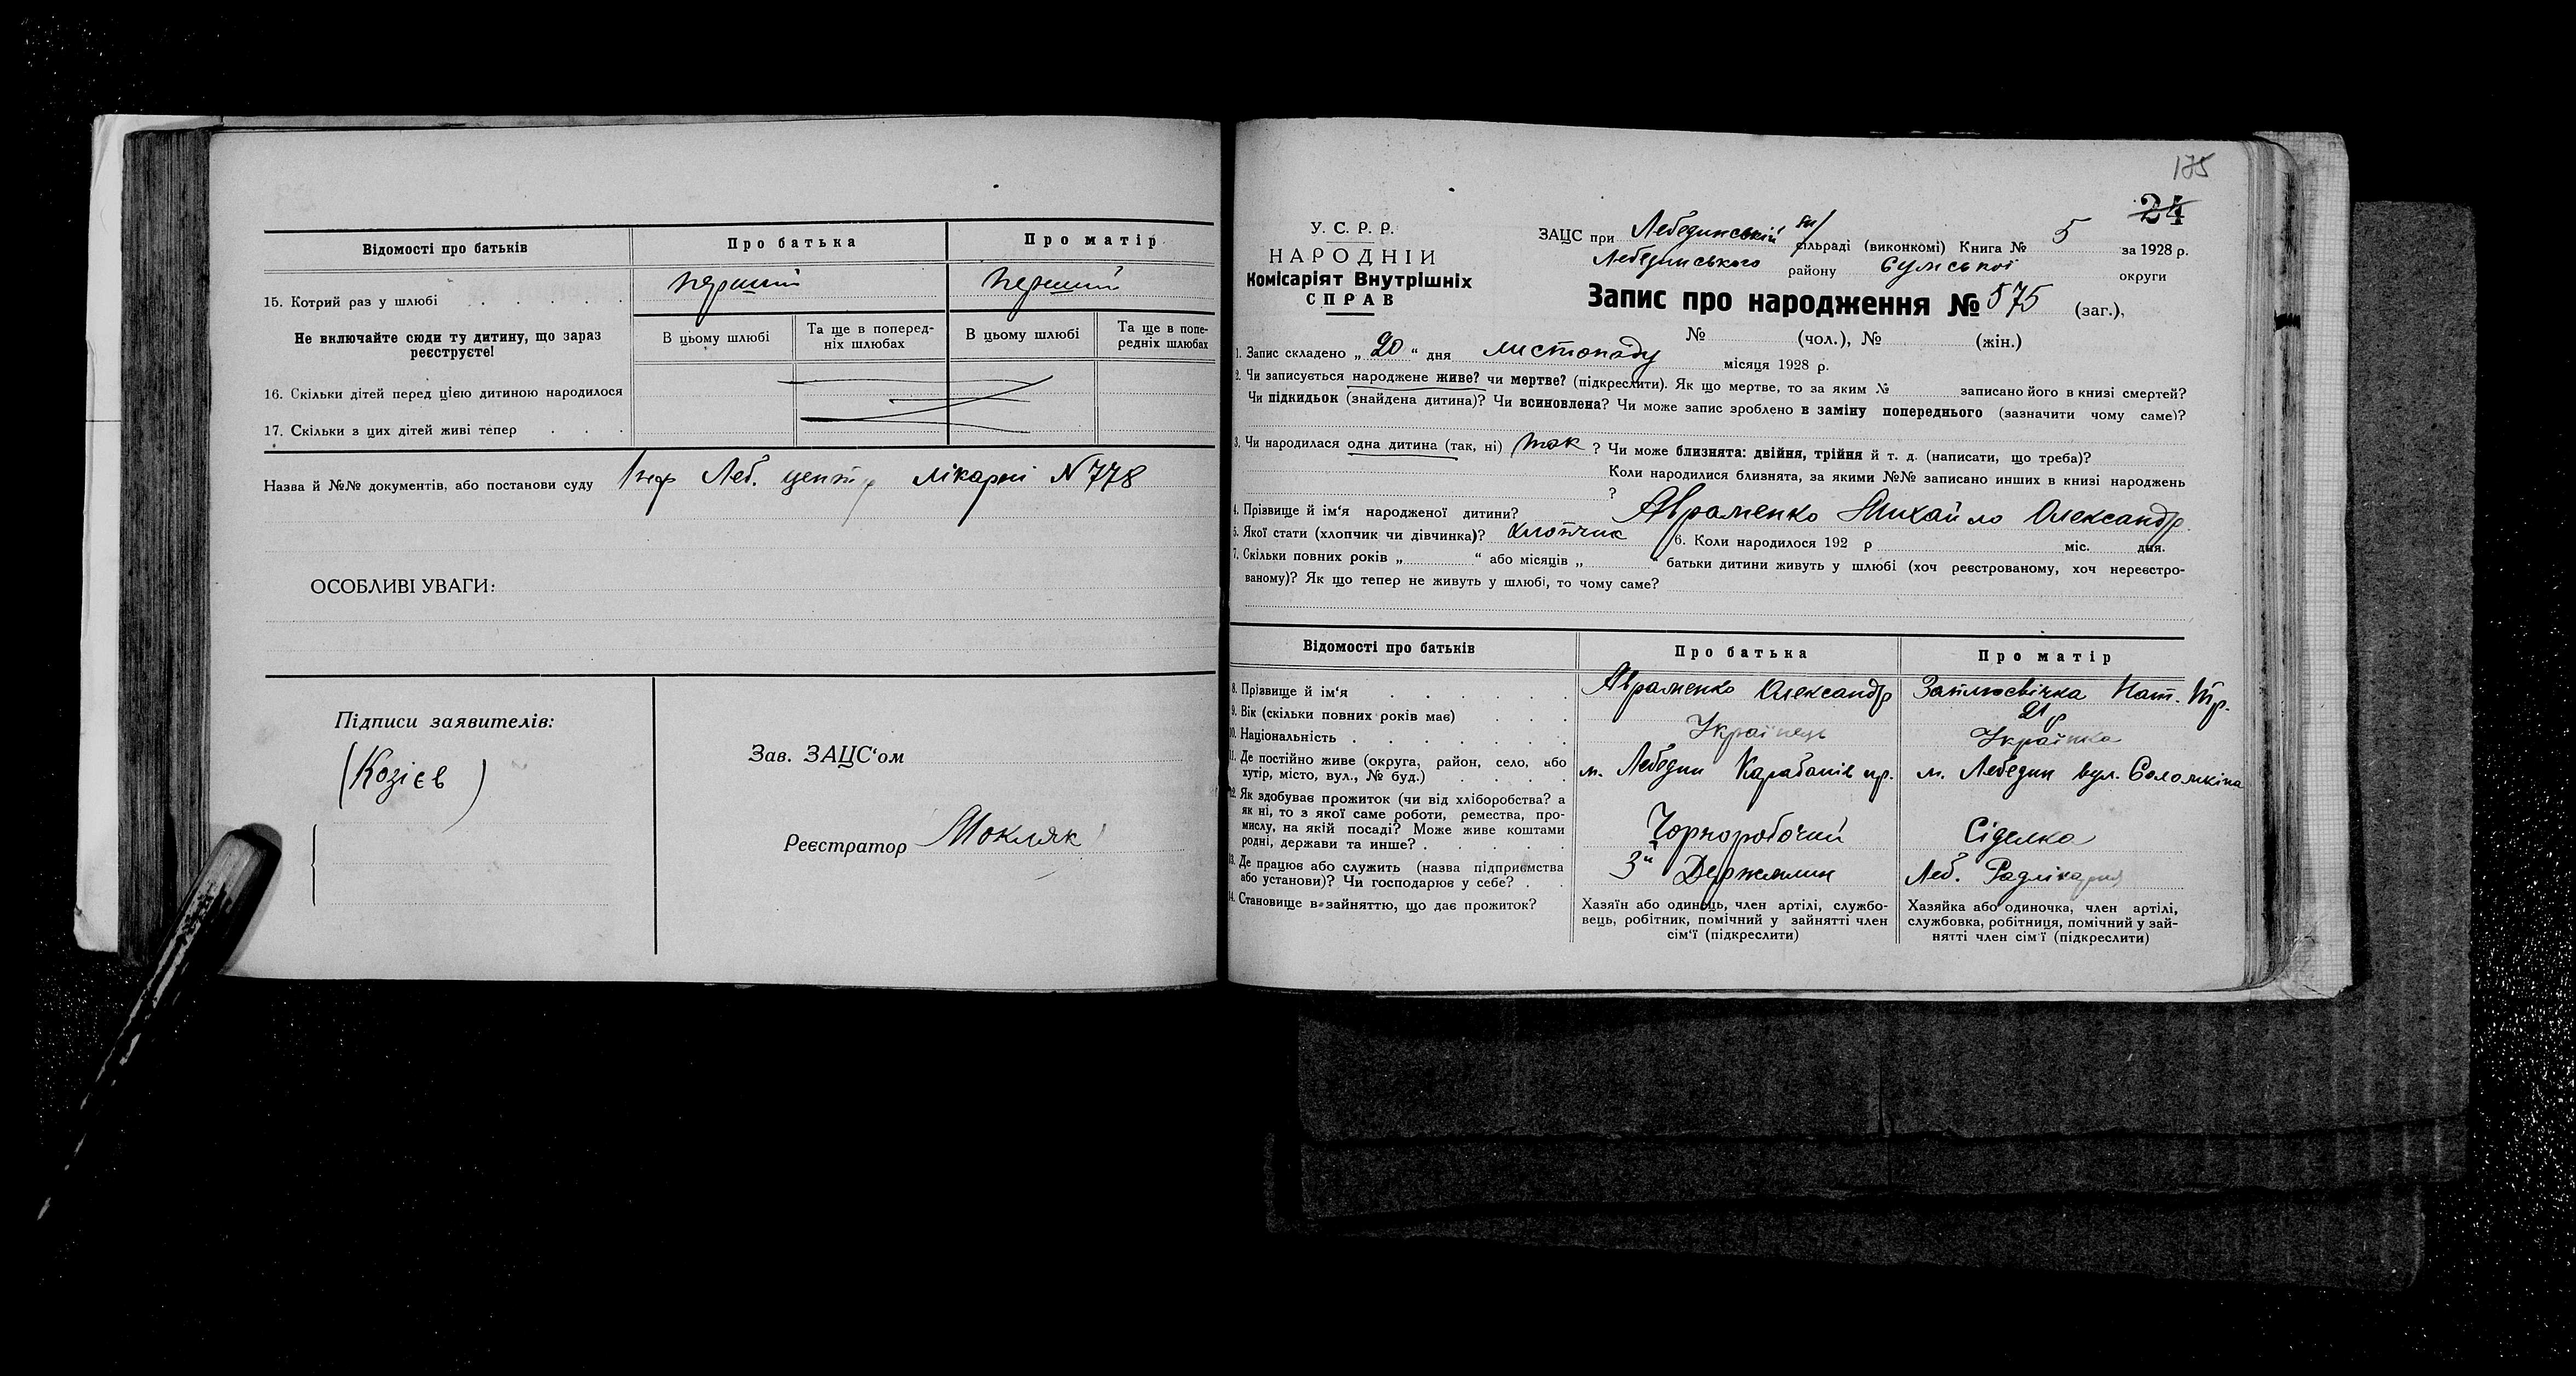 Відомості про батьків
Про батька
Про матір
15. Котрий раз у шлюбі
перший
перший
Не включайте сюди ту дитину, що зараз реєструєте!
В цьому шлюбі
Та ще в поперед-
ніх шлюбах
В цьому шлюбі
Та ще в попе-
редніх шлюбах
16. Скільки дітей перед цією дитиною народилося
17. Скільки з цих дітей живі тепер
Назва й №№ документів, або постанови суду Леб. центр лікарні N 778
ОСОБЛИВІ УВАГИ:
Підписи заявителів:
(Козієв)
Зав. ЗАЦС'ом
Реєстратор Мокляк
175
24
У. С. Р. Р.
НАРОДНІЙ
Комісаріят Внутрішніх
СПРАВ
ЗАЦС при Лебединській сільраді (виконкомі) Книга № 5 за 1928 р.
Лебединського району Сумської округи
Запис про народження № 575 (заг.),
№ (чол.), № (жін.)
1. Запис складено „ 20 “ дня листопаду місяця 1928 р.
2. Чи записується народжене живе? чи мертве? (підкреслити). Як що мертве, то за яким № записано його в книзі смертей?
Чи підкидьок (знайдена дитина)? Чи всиновлена? Чи може запис зроблено в заміну попереднього (зазначити чому саме)?
3. Чи народилася одна дитина (так, ні) так ? Чи може близнята: двійня, трійня й т. д. (написати, що треба)?
Коли народилися близнята, за якими №№ записано инших в книзі народжень
?
4. Прізвище й ім'я народженої дитини? Авраменко Михайло Олександр.
5. Якої стати (хлопчик чи дівчинка)? Хлопчик 6. Коли народилося 192 р міс. дня.
7. Скільки повних років „ “ або місяців „ “ батьки дитини живуть у шлюбі (хоч реєстрованому, хоч нереєстро-
ваному)? Як що тепер не живуть у шлюбі, то чому саме?
Відомості про батьків
Про батька
Про матір
8. Прізвище й ім'я
Авраменко Олександр
Заплюсвічка Нат. Тр.
9. Вік (скільки повних років має)
21 р
10. Національність
Українець
Українка
11. Де постійно живе (округа, район, село, або
хутір, місто, вул., № буд.)
м. Лебедин Карабанів пр.
м. Лебедин вул. Соломкіна
12. Як здобуває прожиток (чи від хліборобства? а
як ні, то з якої саме роботи, ремества, про-
мислу, на якій посаді? Може живе коштами
родні, держави та инше?
Чорноробочий
Сіделка
13. Де працює або служить (назва підприємства
або установи)? Чи господарює у себе?
3й Держмлин
Леб. Радлікарня
14. Становище в зайняттю, що дає прожиток?
Хазяїн або одинець, член артілі, службо-
вець, робітник, помічний у зайнятті член
сім'ї (підкреслити)
Хазяйка або одиночка, член артілі,
службовка, робітниця, помічний у зай-
нятті член сім'ї (підкреслити)